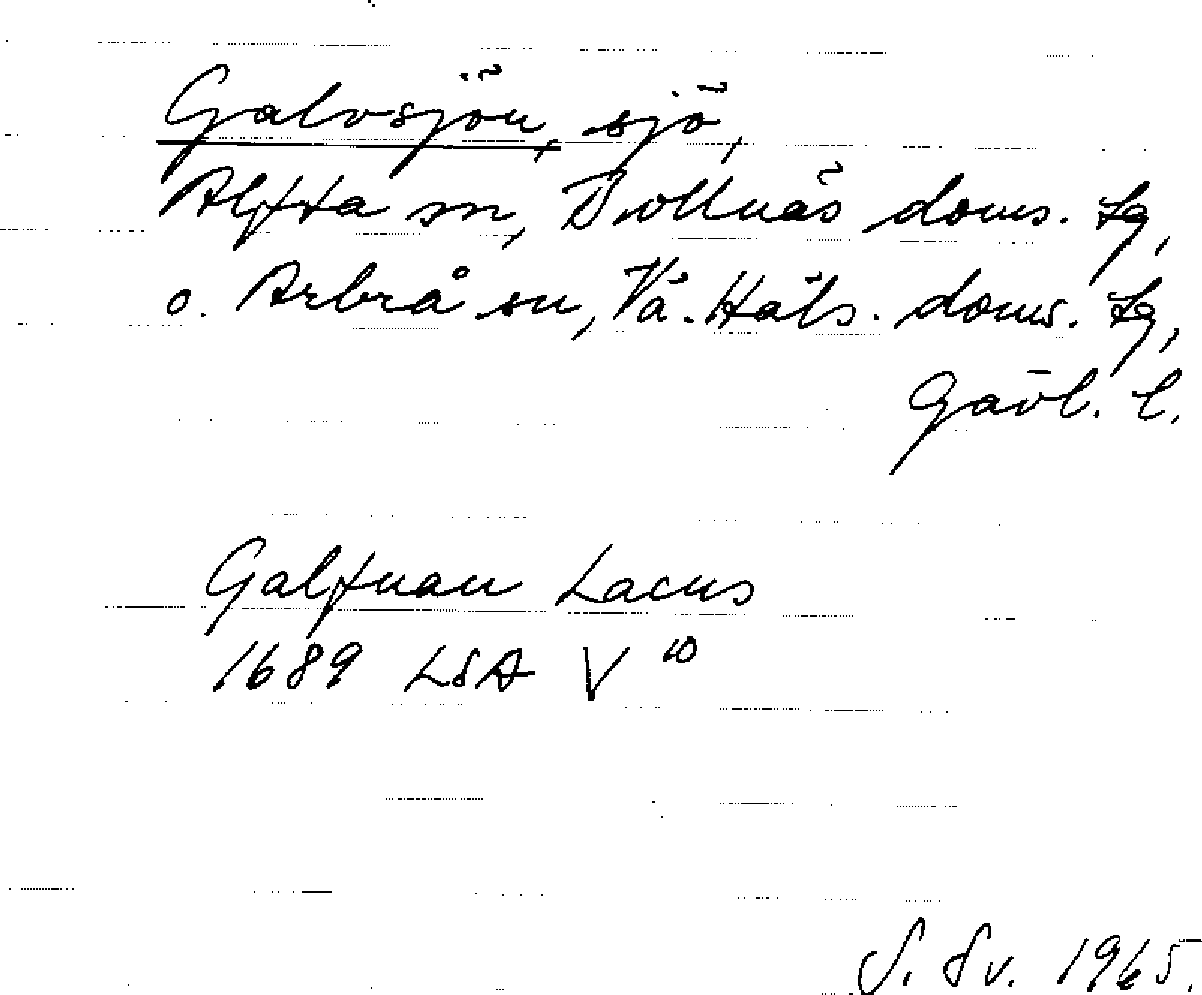 Galvsjön, sjö,
Alfta sn, Bollnäs doms. tg,
o. Arbrå sn, Vä. Häls. doms. tg,
Gävl. l.
Galfnan Lacus
1689 LSA V 10
S. Sv. 1965.